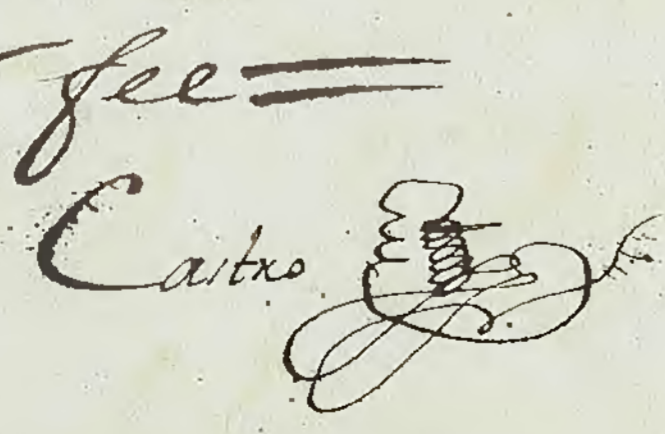 fee =
Castro